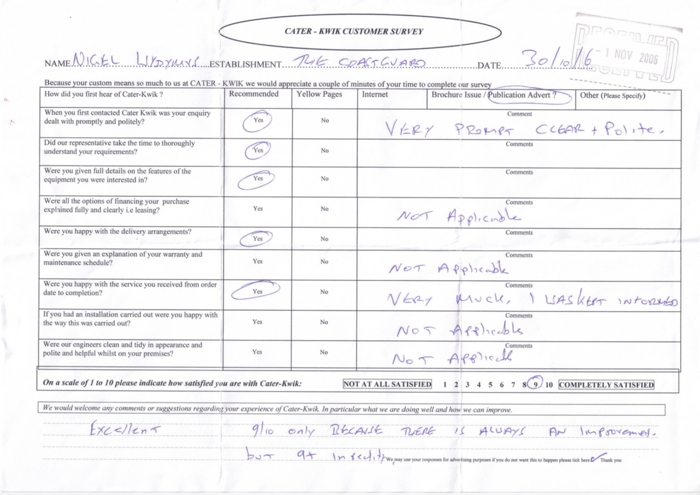 CATER - KWIK CUSTOMER SURVEY
NAME NIGEL ESTABLISHMENT THE COASTGUARD DATE 30/10/6
1 NOV 2006
Because your custom means so much to us at CATER - KWIK we would appreciate a couple of minutes of your time to complete our survey
How did you first hear of Cater-Kwik ? Recommended Yellow Pages Internet Brochure Issue / Publication Advert ? Other (Please Specify)
When you first contacted Cater Kwik was your enquiry dealt with promptly and politely? Yes No Comments
VERY PROMPT CLEAR + Polite.
Did our representative take the time to thoroughly understand your requirements? Yes No Comments
Were you given full details on the features of the equipment you were interested in? Yes No Comments
Were all the options of financing your purchase explained fully and clearly i.e leasing? Yes No Comments
NOT Applicable
Were you happy with the delivery arrangements? Yes No Comments
Were you given an explanation of your warranty and maintenance schedule? Yes No Comments
NOT Applicable
Were you happy with the service you received from order date to completion? Yes No Comments
VERY Much, I
If you had an installation carried out were you happy with the way this was carried out? Yes No Comments
NOT Applicable
Were our engineers clean and tidy in appearance and polite and helpful whilst on your premises? Yes No Comments
NOT
On a scale of 1 to 10 please indicate how satisfied you are with Cater-Kwik: NOT AT ALL SATISFIED 1 2 3 4 5 6 7 8 9 10 COMPLETELY SATISFIED
We would welcome any comments or suggestions regarding your experience of Cater-Kwik. In particular what we are doing well and how we can improve.
Excellent 9/10 only BECAUSE THERE IS ALWAYS AN Improvement.
but
Thank you